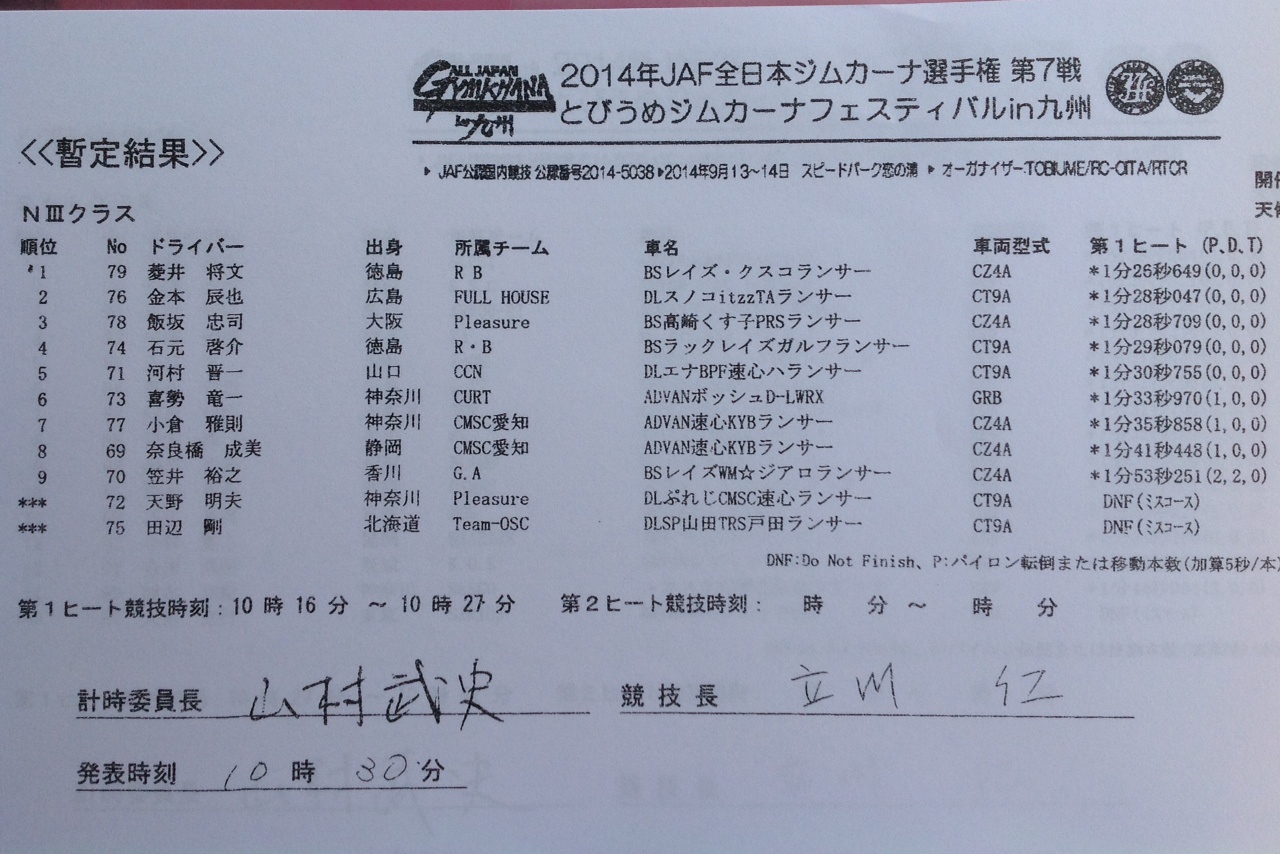 ALL JAPAN
GYMKHANA
in九州
2014年JAF全日本ジムカーナ選手権 第7戦
とびうめジムカーナフェスティバルin九州
<<暫定結果>>
▶ JAF公認国内競技 公認番号2014-5038 ▶2014年9月13~14日 スピードパーク恋の浦 ▶ オーガナイザー:TOBIUME/RC-OITA/RTCR
開催
NⅢクラス 天候
順位 No ドライバー 出身 所属チーム 車名 車両型式 第1ヒート (P.D.T)
*1 79 菱井 将文 徳島 RB BSレイズ・クスコランサー CZ4A *1分26秒649(0,0,0)
2 76 金本 辰也 広島 FULL HOUSE DLスノコitzzTAランサー CT9A *1分28秒047(0,0,0)
3 78 飯坂 忠司 大阪 Pleasure BS高崎くす子PRSランサー CZ4A *1分28秒709(0,0,0)
4 74 石元 啓介 徳島 R・B BSラックレイズガルフランサー CT9A *1分29秒079(0,0,0)
5 71 河村 晋一 山口 CCN DLエナBPF速心ハランサー CT9A *1分30秒755(0,0,0)
6 73 喜勢 竜一 神奈川 CURT ADVANボッシュD-LWRX GRB *1分33秒970(1,0,0)
7 77 小倉 雅則 神奈川 CMSC愛知 ADVAN速心KYBランサー CZ4A *1分35秒858(1,0,0)
8 69 奈良橋 成美 静岡 CMSC愛知 ADVAN速心KYBランサー CZ4A *1分41秒448(1,0,0)
9 70 笠井 裕之 香川 G.A BSレイズWM☆ジアロランサー CZ4A *1分53秒251(2,2,0)
*** 72 天野 明夫 神奈川 Pleasure DLぷれじCMSC速心ランサー CT9A DNF(ミスコース)
*** 75 田辺 剛 北海道 Team-OSC DLSP山田TRS戸田ランサー CT9A DNF(ミスコース)
DNF:Do Not Finish、P:パイロン転倒または移動本数(加算5秒/本)
第1ヒート競技時刻:10 時 16 分 ~ 10 時 27 分 第2ヒート競技時刻: 時 分 ~ 時 分
計時委員長 山村武史 競技長 立川 仁
発表時刻 10 時 30 分